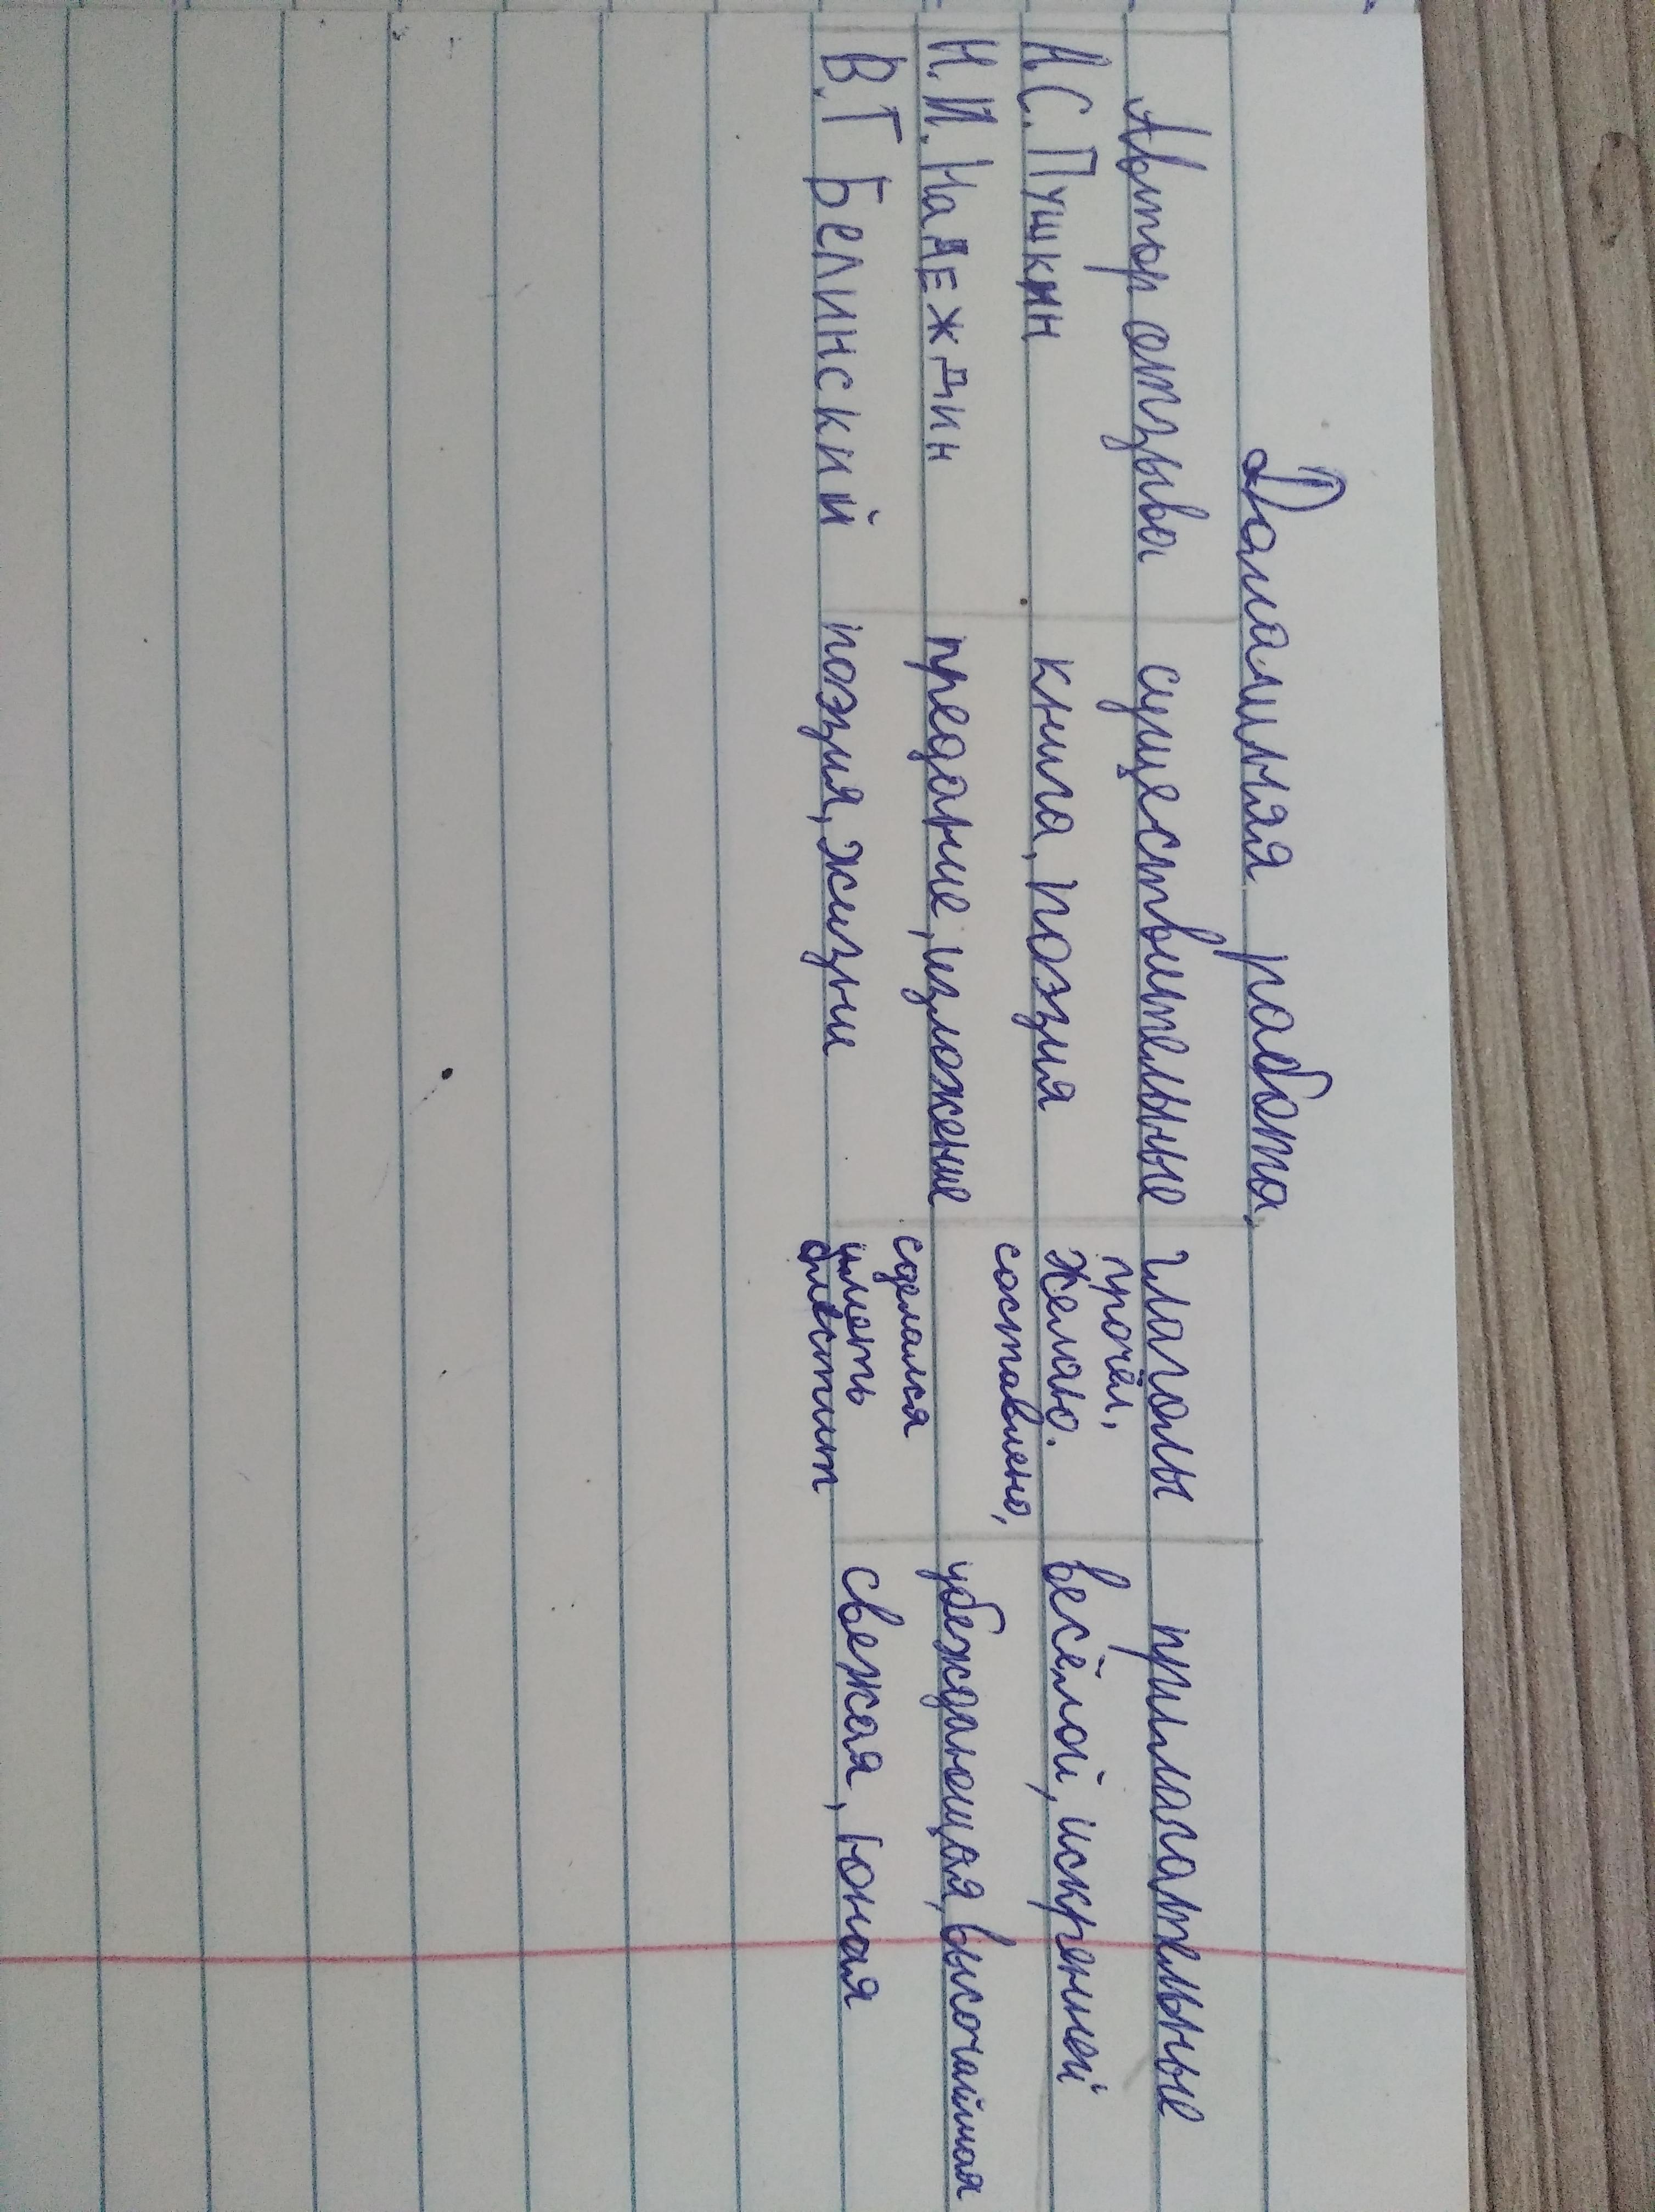 Домашняя работа.
Автор отзыва существительные глаголы прилагательные
А.С. Пушкин книга, поэзия прочёл, желаю. весёлой, искренней
Н.И. Надеждин предание, изложение составлено, сделался убеждающая, высочайшая
В.Г Белинский поэзия, жизни иметь блестит свежая, юная